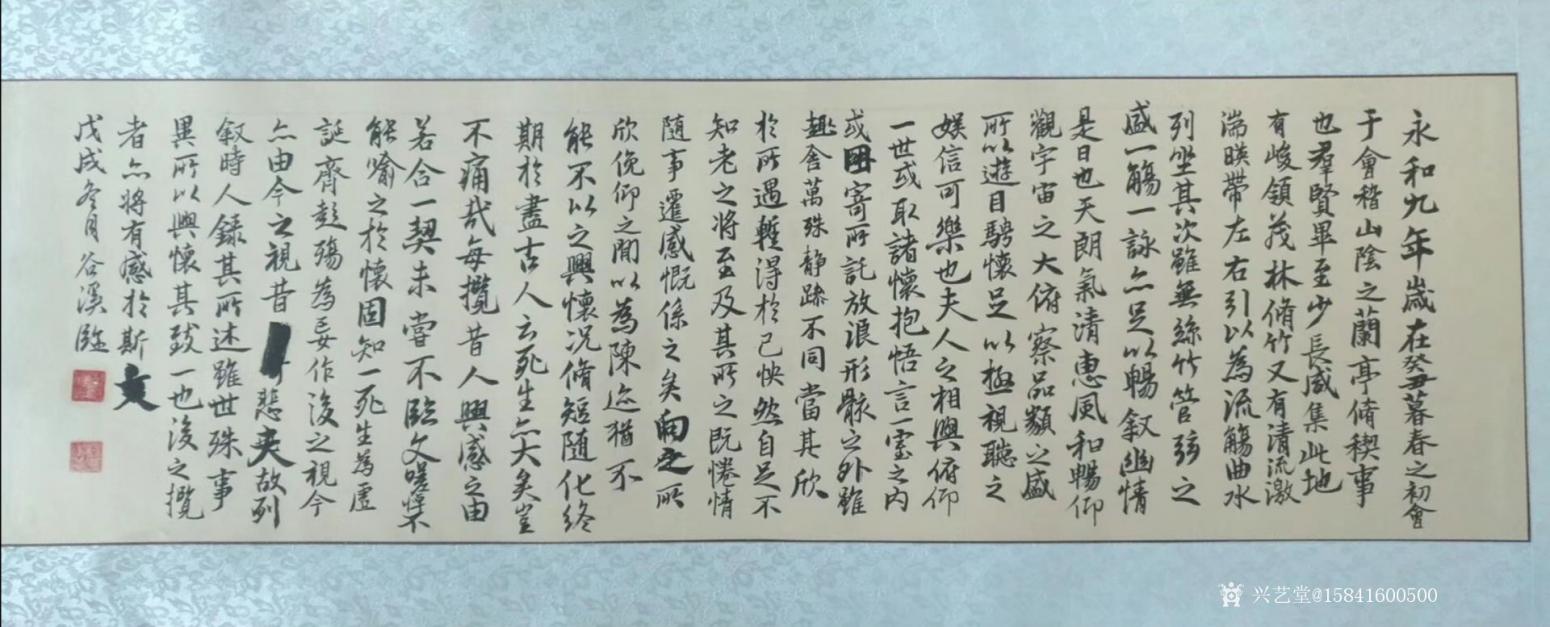 永和九年歲在癸丑暮春之初會
于會稽山陰之蘭亭脩稧事
也羣賢畢至少長咸集此地
有峻領茂林脩竹又有清流激
湍暎帶左右引以為流觴曲水
列坐其次雖無絲竹管弦之
盛一觴一詠亦足以暢敘幽情
是日也天朗氣清惠風和暢仰
觀宇宙之大俯察品類之盛
所以遊目騁懷足以極視聽之
娛信可樂也夫人之相與俯仰
一世或取諸懷抱悟言一室之內
或因寄所託放浪形骸之外雖
趣舍萬殊静躁不同當其欣
於所遇暫得於己怏然自足不
知老之將至及其所之既惓情
随事遷感慨係之矣向之所
欣俛仰之閒以為陳迹猶不
能不以之興懷況脩短随化終
期於盡古人云死生亦大矣豈
不痛哉每攬昔人興感之由
若合一契未嘗不臨文嗟悼不
能喻之於懷固知一死生為虛
誕齊彭殤為妄作後之視今
亦由今之視昔悲夫故列
敘時人錄其所述雖世殊事
異所以興懷其致一也後之攬
者亦將有感於斯文
戊戌冬月谷溪臨
兴艺堂@15841600500